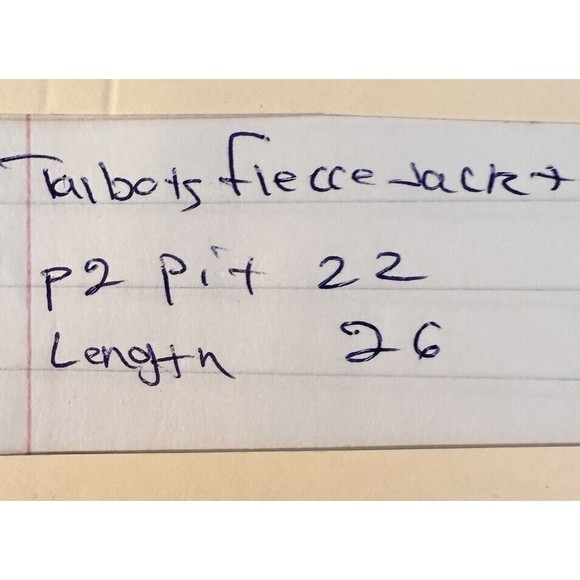 Talbots fiecce Jackt
p2 pit 22
Length 26